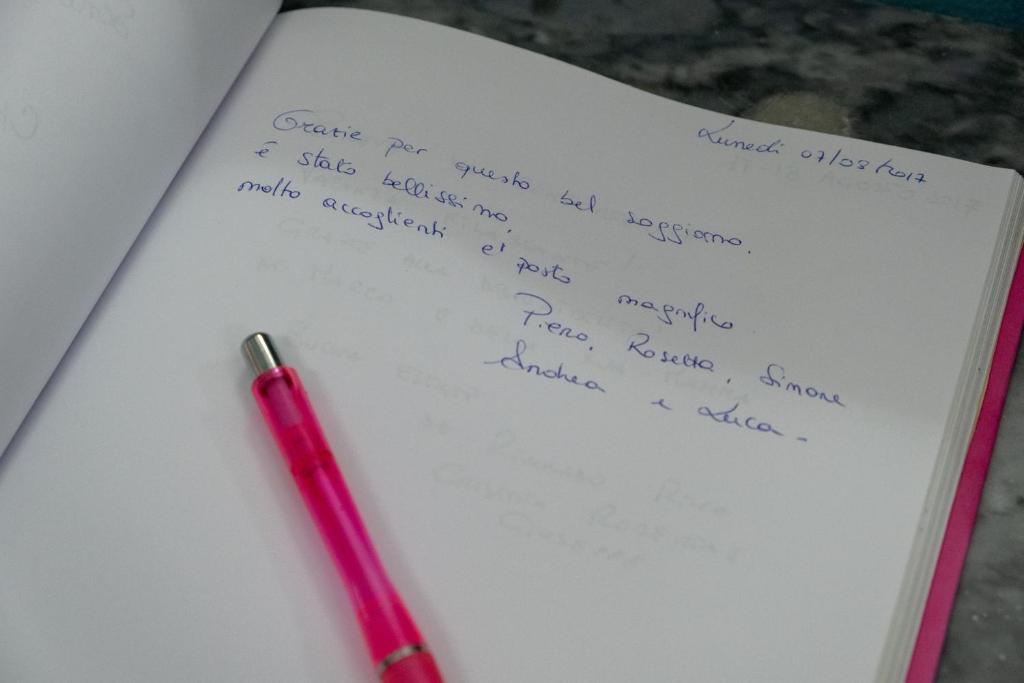 Lunedì 07/08/2017
Grazie per questo bel soggiorno.
è stato bellissimo,
molto accoglienti e' posto magnifico
Piero, Rosetta, Simone
Andrea e Luca -